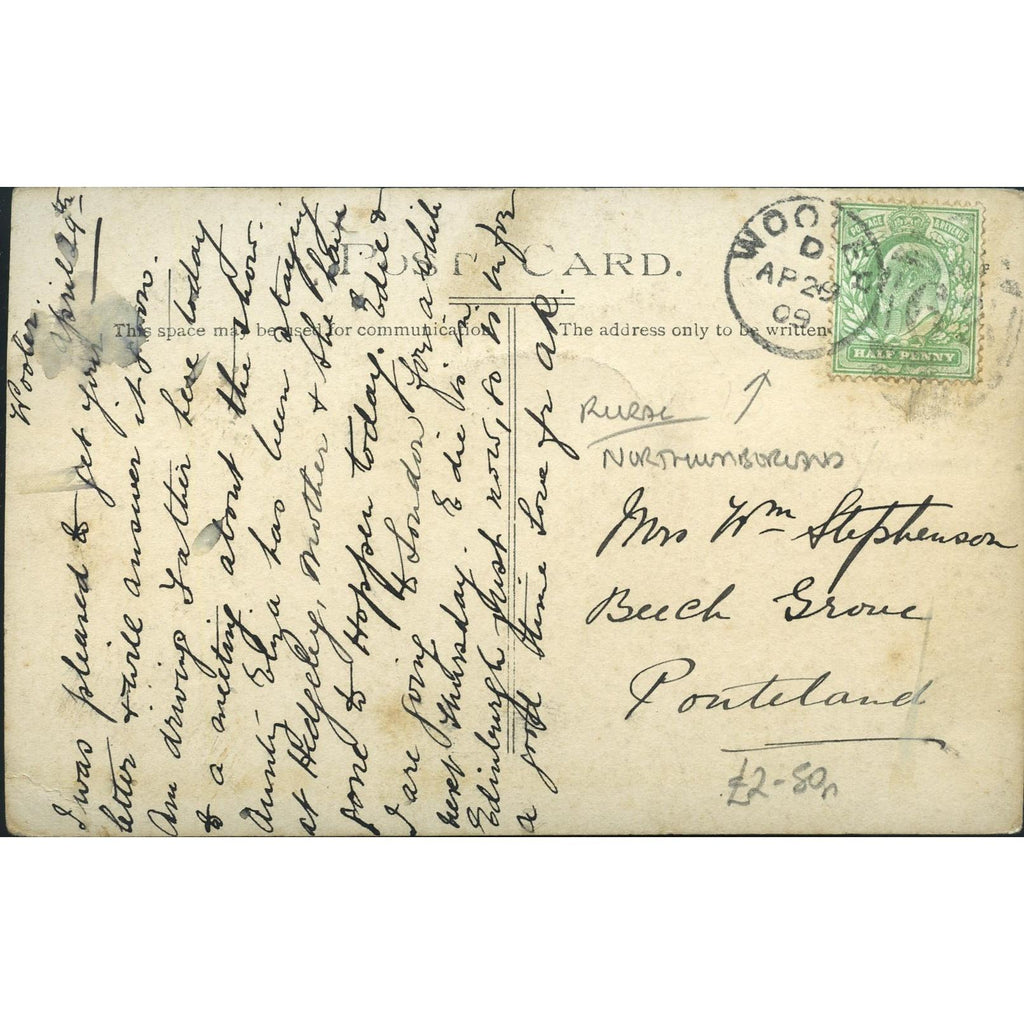 POST CARD.
This space may be used for communication
The address only to be written
WOOLER
D
AP 29
09
POSTAGE REVENUE
HALF PENNY
RURAL
NORTHUMBERLAND
Mrs Wm Stephenson
Beech Grove
Ponteland
£2-80
Wooler
april 29th
I was pleased to get your
letter & will answer it soon.
Am driving Father here today
to a meeting about the show.
Aunty Eliza has been staying
at Hedgeley, Mother & she have
gone to Hopper today. Edie &
I are going to London for a while
next Thursday. Edie is in
Edinburgh just now, so is in for
a good time Love fr AR.